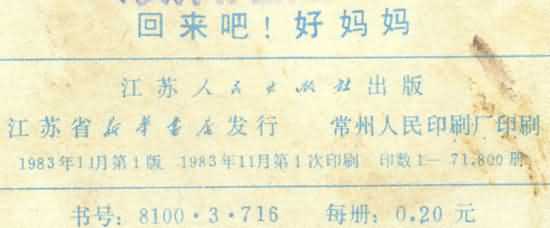 回来吧！好妈妈
江苏人民出版社出版
江苏省新华书店发行 常州人民印刷厂印刷
1983年11月第1版 1983年11月第1次印刷 印数1—71,800册
书号：8100·3·716 每册：0.20元